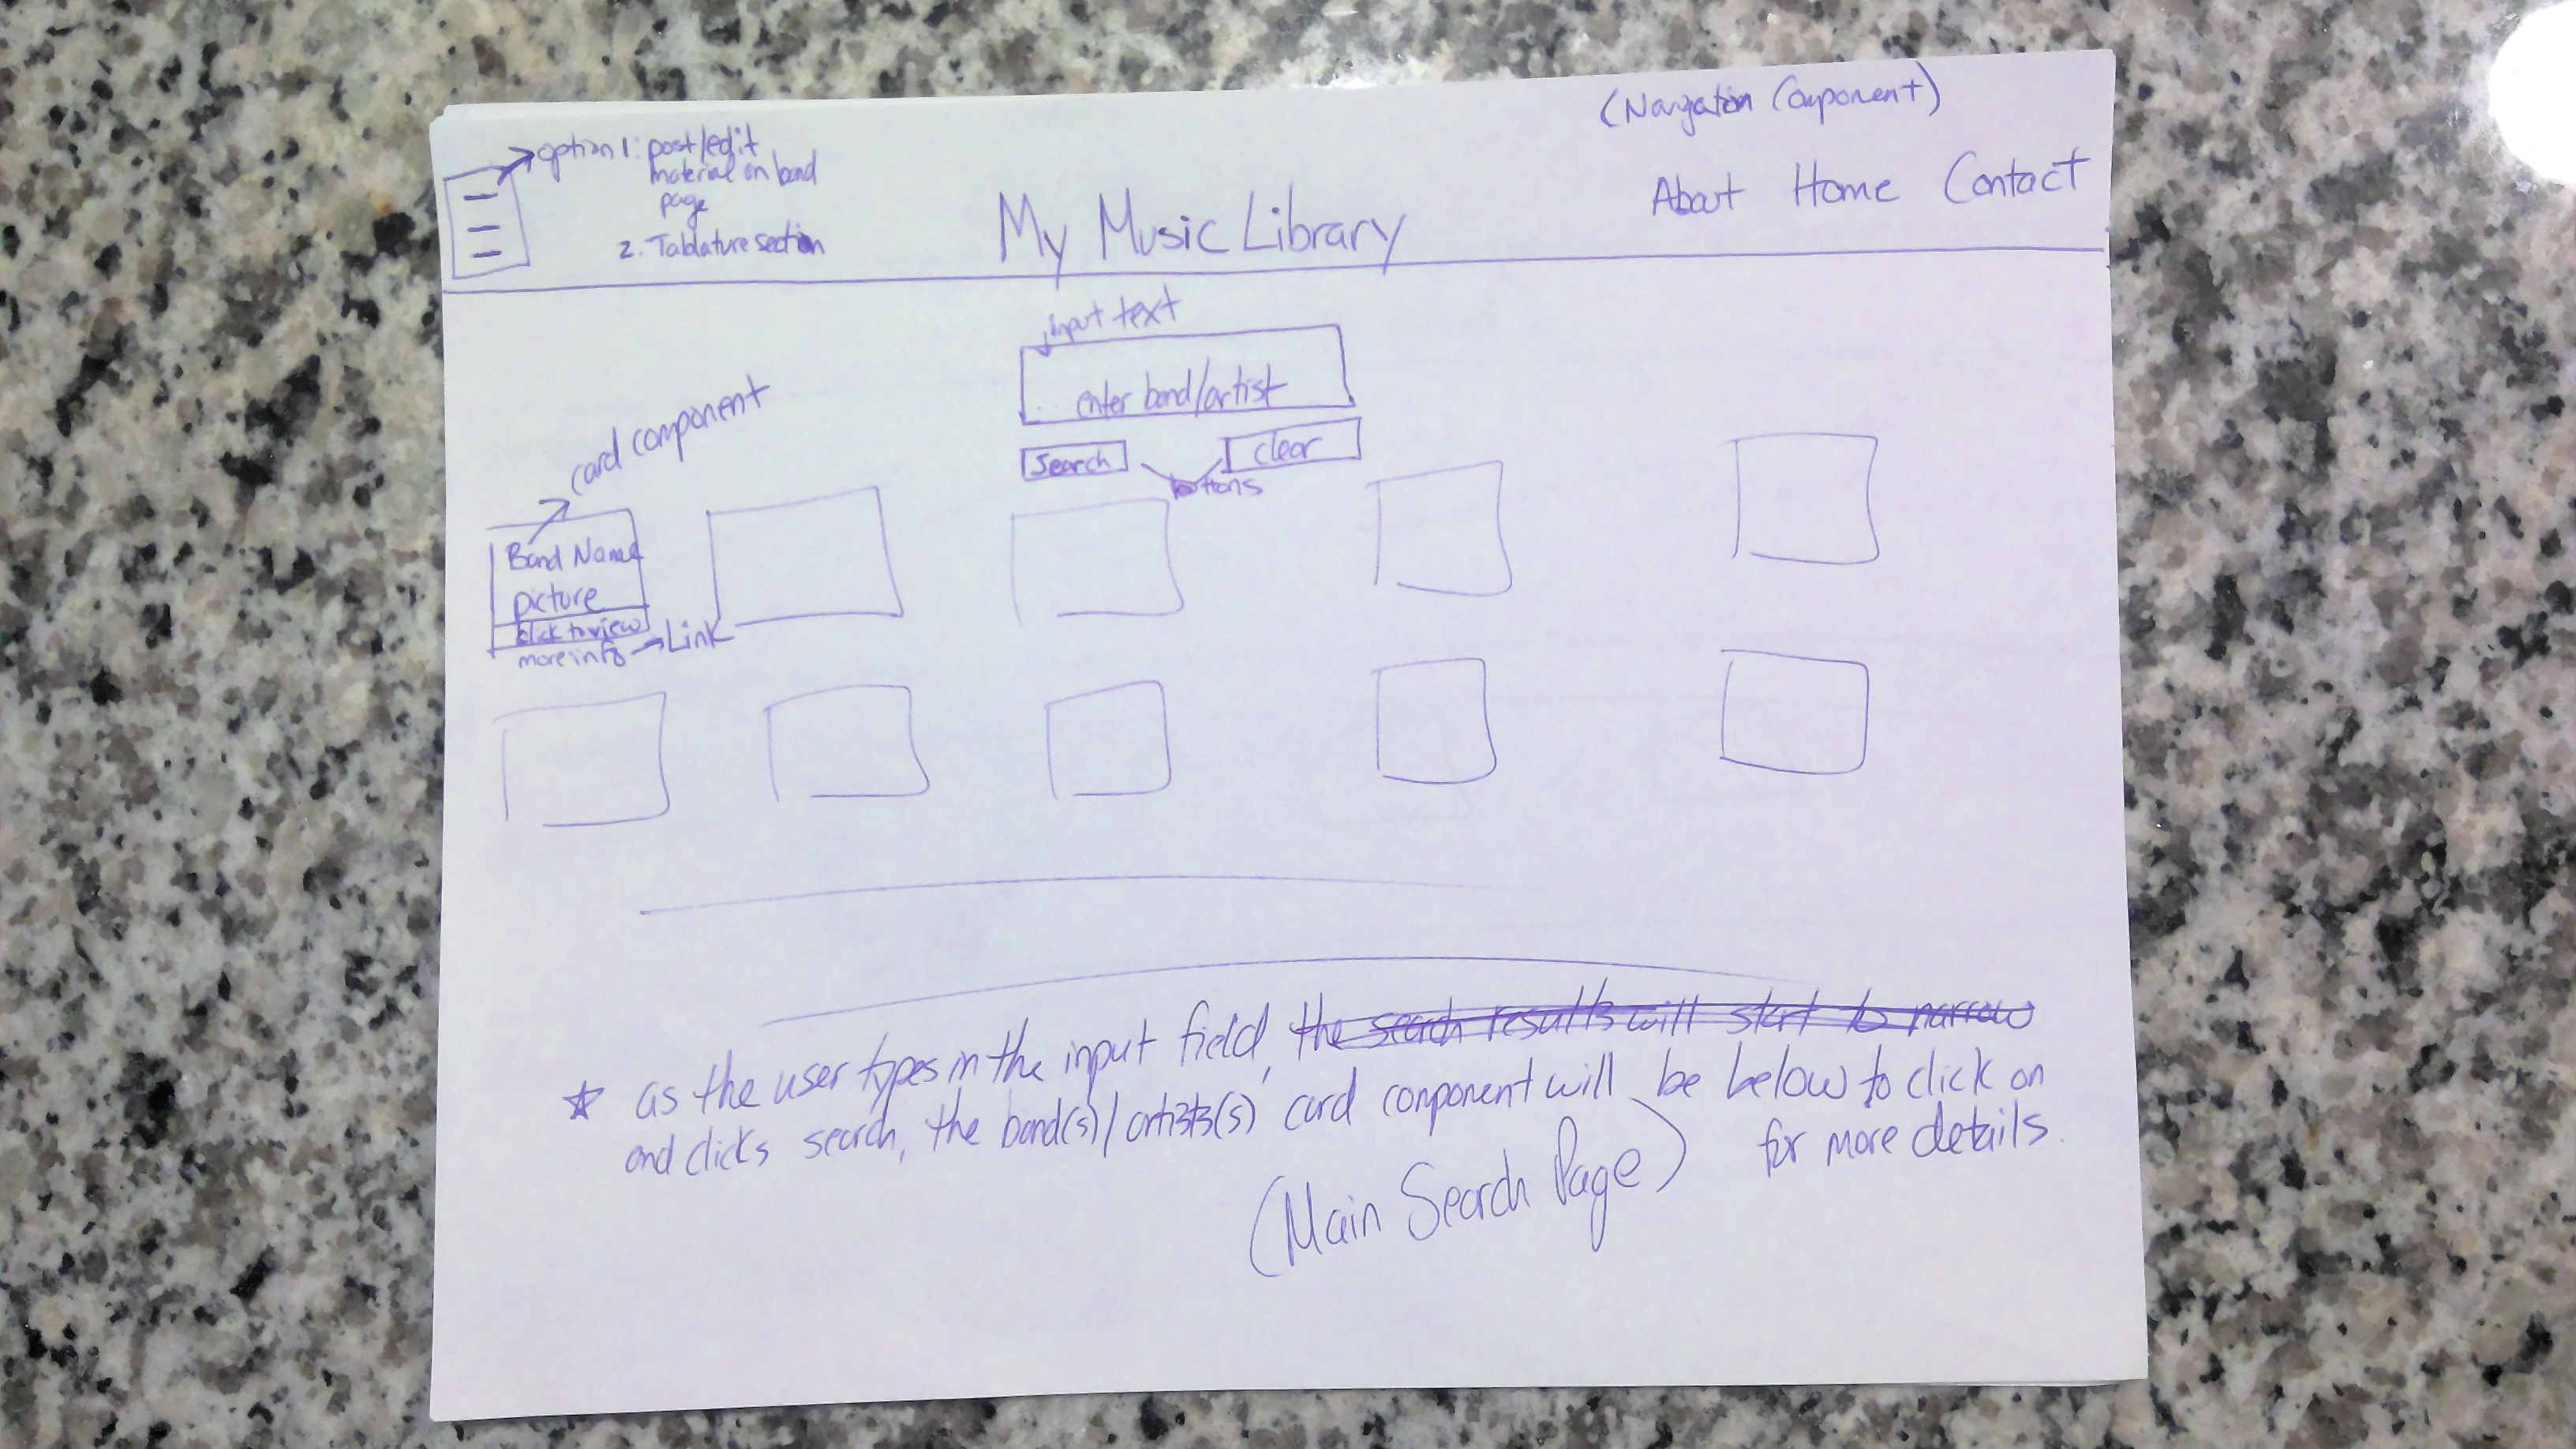 (Navigation Component)
option 1: post/edit
material on band
page
2. Tablature section
My Music Library
About Home Contact
input text
enter band/artist
Search
clear
buttons
card component
Band Name
picture
click to view
more info → Link
as the user types in the input field, the search results will start to narrow
and clicks search, the band(s)/artists(s) card component will be below to click on
for more details.
(Main Search Page)